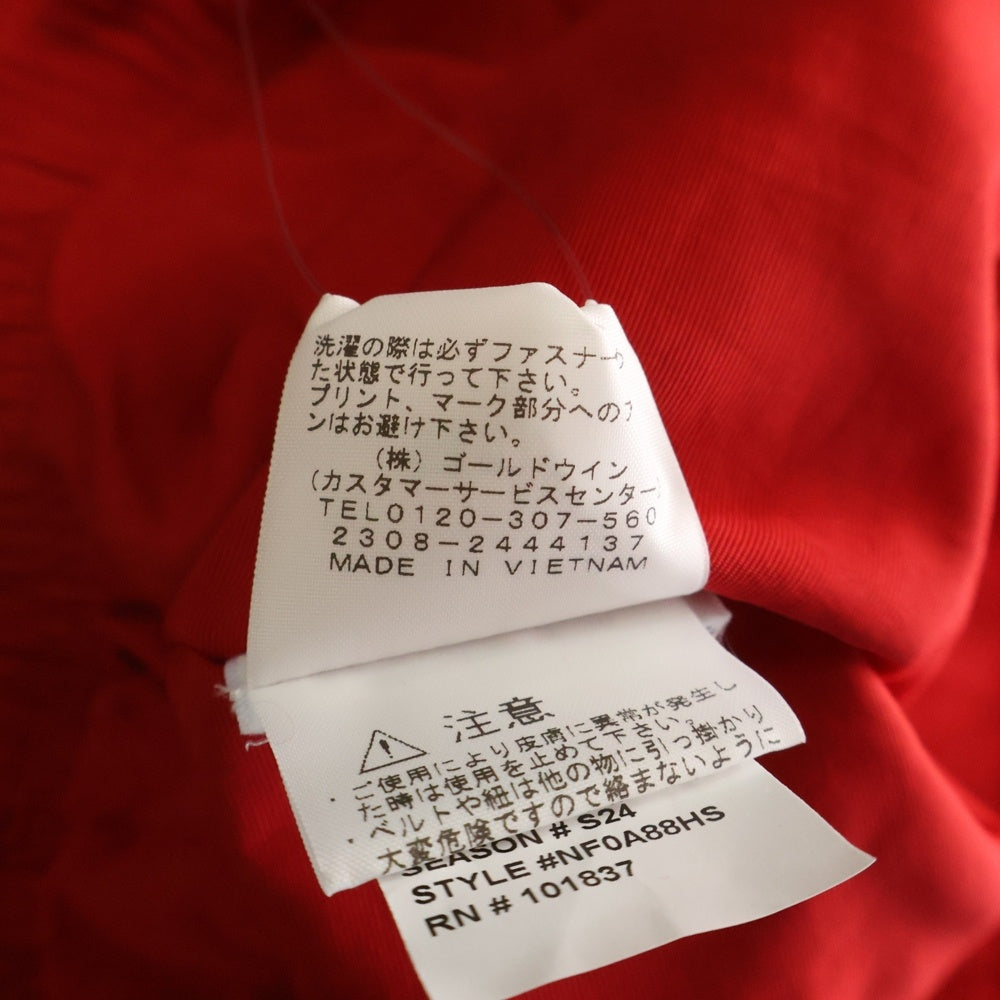 洗濯の際は必ずファスナー
た状態で行って下さい。
プリント、マーク部分への
ンはお避け下さい。
(株) ゴールドウイン
(カスタマーサービスセンター
TEL0120-307-560
2308-2444137
MADE IN VIETNAM
注意
・ご使用により皮膚に異常が発生し
た時は使用を止めて下さい。
・ベルトや紐は他の物に引っ掛かり
大変危険ですので絡まないように
SEASON # S24
STYLE #NF0A88HS
RN # 101837